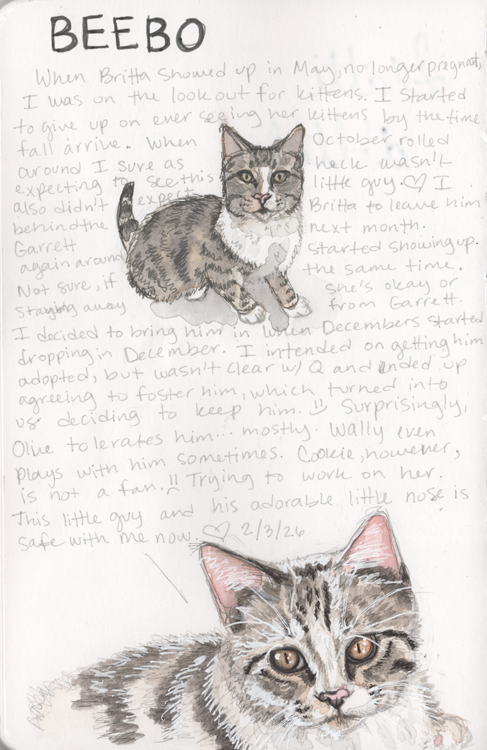 BEEBO
When Britta showed up in May, no longer pregnant,
I was on the lookout for kittens. I started
to give up on ever seeing her kittens by the time
fall arrive. When October rolled
around I sure as heck wasn't
expecting to see this little guy.♡ I
also didn't expect Britta to leave him
behind the next month.
Garrett started showing up.
again around the same time.
Not sure, if she's okay or
staying away from Garrett.
I decided to bring him in when Decembers started
dropping in December. I intended on getting him
adopted, but wasn't clear w/ Q and ended up
agreeing to foster him, which turned into
us deciding to keep him. Surprisingly,
Olive tolerates him... mostly. Wally even
plays with him sometimes. Cookie, however,
is not a fan. Trying to work on her.
This little guy and his adorable little nose is
safe with me now. ♡ 2/3/26